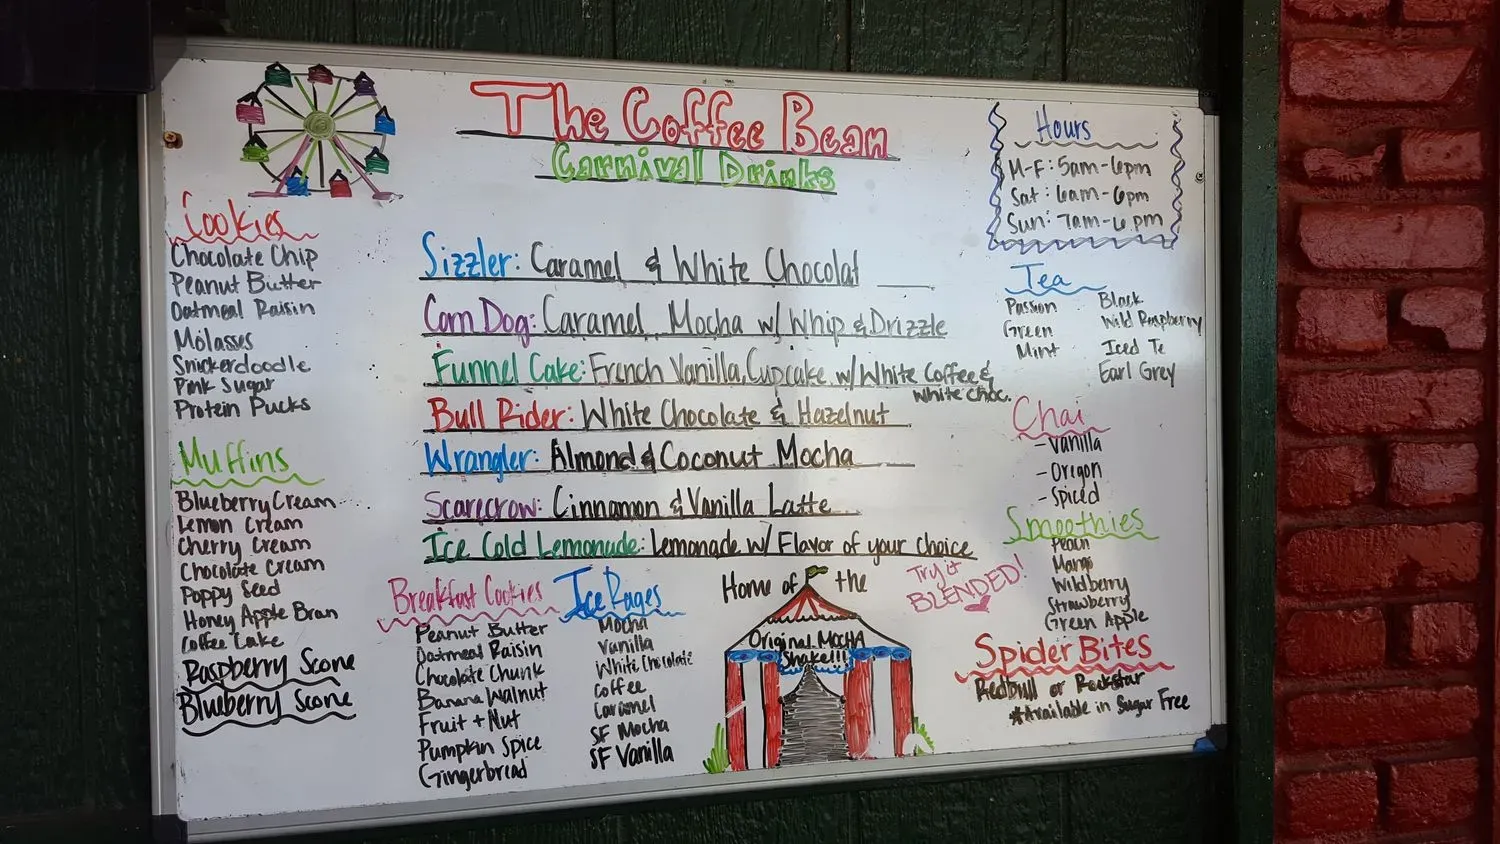 The Coffee Bean
Carnival Drinks
Hours
M-F: 5am-6pm
Sat: 6am-6pm
Sun: 7am-6pm
Cookies
Chocolate Chip
Peanut Butter
Oatmeal Raisin
Molasses
Snickerdoodle
Pink Sugar
Protein Pucks
Muffins
Blueberry Cream
Lemon Cream
Cherry Cream
Chocolate Cream
Poppy Seed
Honey Apple Bran
Coffee Cake
Raspberry Scone
Blueberry Scone
Sizzler: Caramel & White Chocolat
Corn Dog: Caramel Mocha w/ Whip & Drizzle
Funnel Cake: French Vanilla, Cupcake w/ White Coffee &
White Choc.
Bull Rider: White Chocolate & Hazelnut
Wrangler: Almond & Coconut Mocha
Scarecrow: Cinnamon & Vanilla Latte
Ice Cold Lemonade: Lemonade w/ Flavor of your choice
Breakfast Cookies
Peanut Butter
Oatmeal Raisin
Chocolate Chunk
Banana Walnut
Fruit + Nut
Pumpkin Spice
Gingerbread
Ice Rages
Mocha
Vanilla
White Chocolate
Coffee
Caramel
SF Mocha
SF Vanilla
Home of the
Original MocHA
Shake!!!
Try it
BLENDED!
Tea
Passion
Green
Mint
Black
Wild Raspberry
Iced Te
Earl Grey
Chai
- Vanilla
- Oregon
- Spiced
Smoothies
Peach
Mango
Wildberry
Strawberry
Green Apple
Spider Bites
Redbull or Rockstar
*Available in Sugar Free